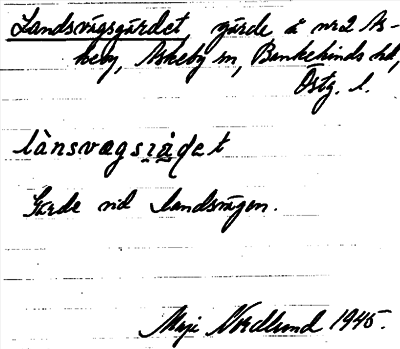 Landsvägsgärdet gärde å nr 2 As-
keby, Askeby sn, Bankekinds hd,
Östg. l.
lànsvægsjæ̀ḍet
Gärde vid landsvägen.
Maja Nordlund 1945.